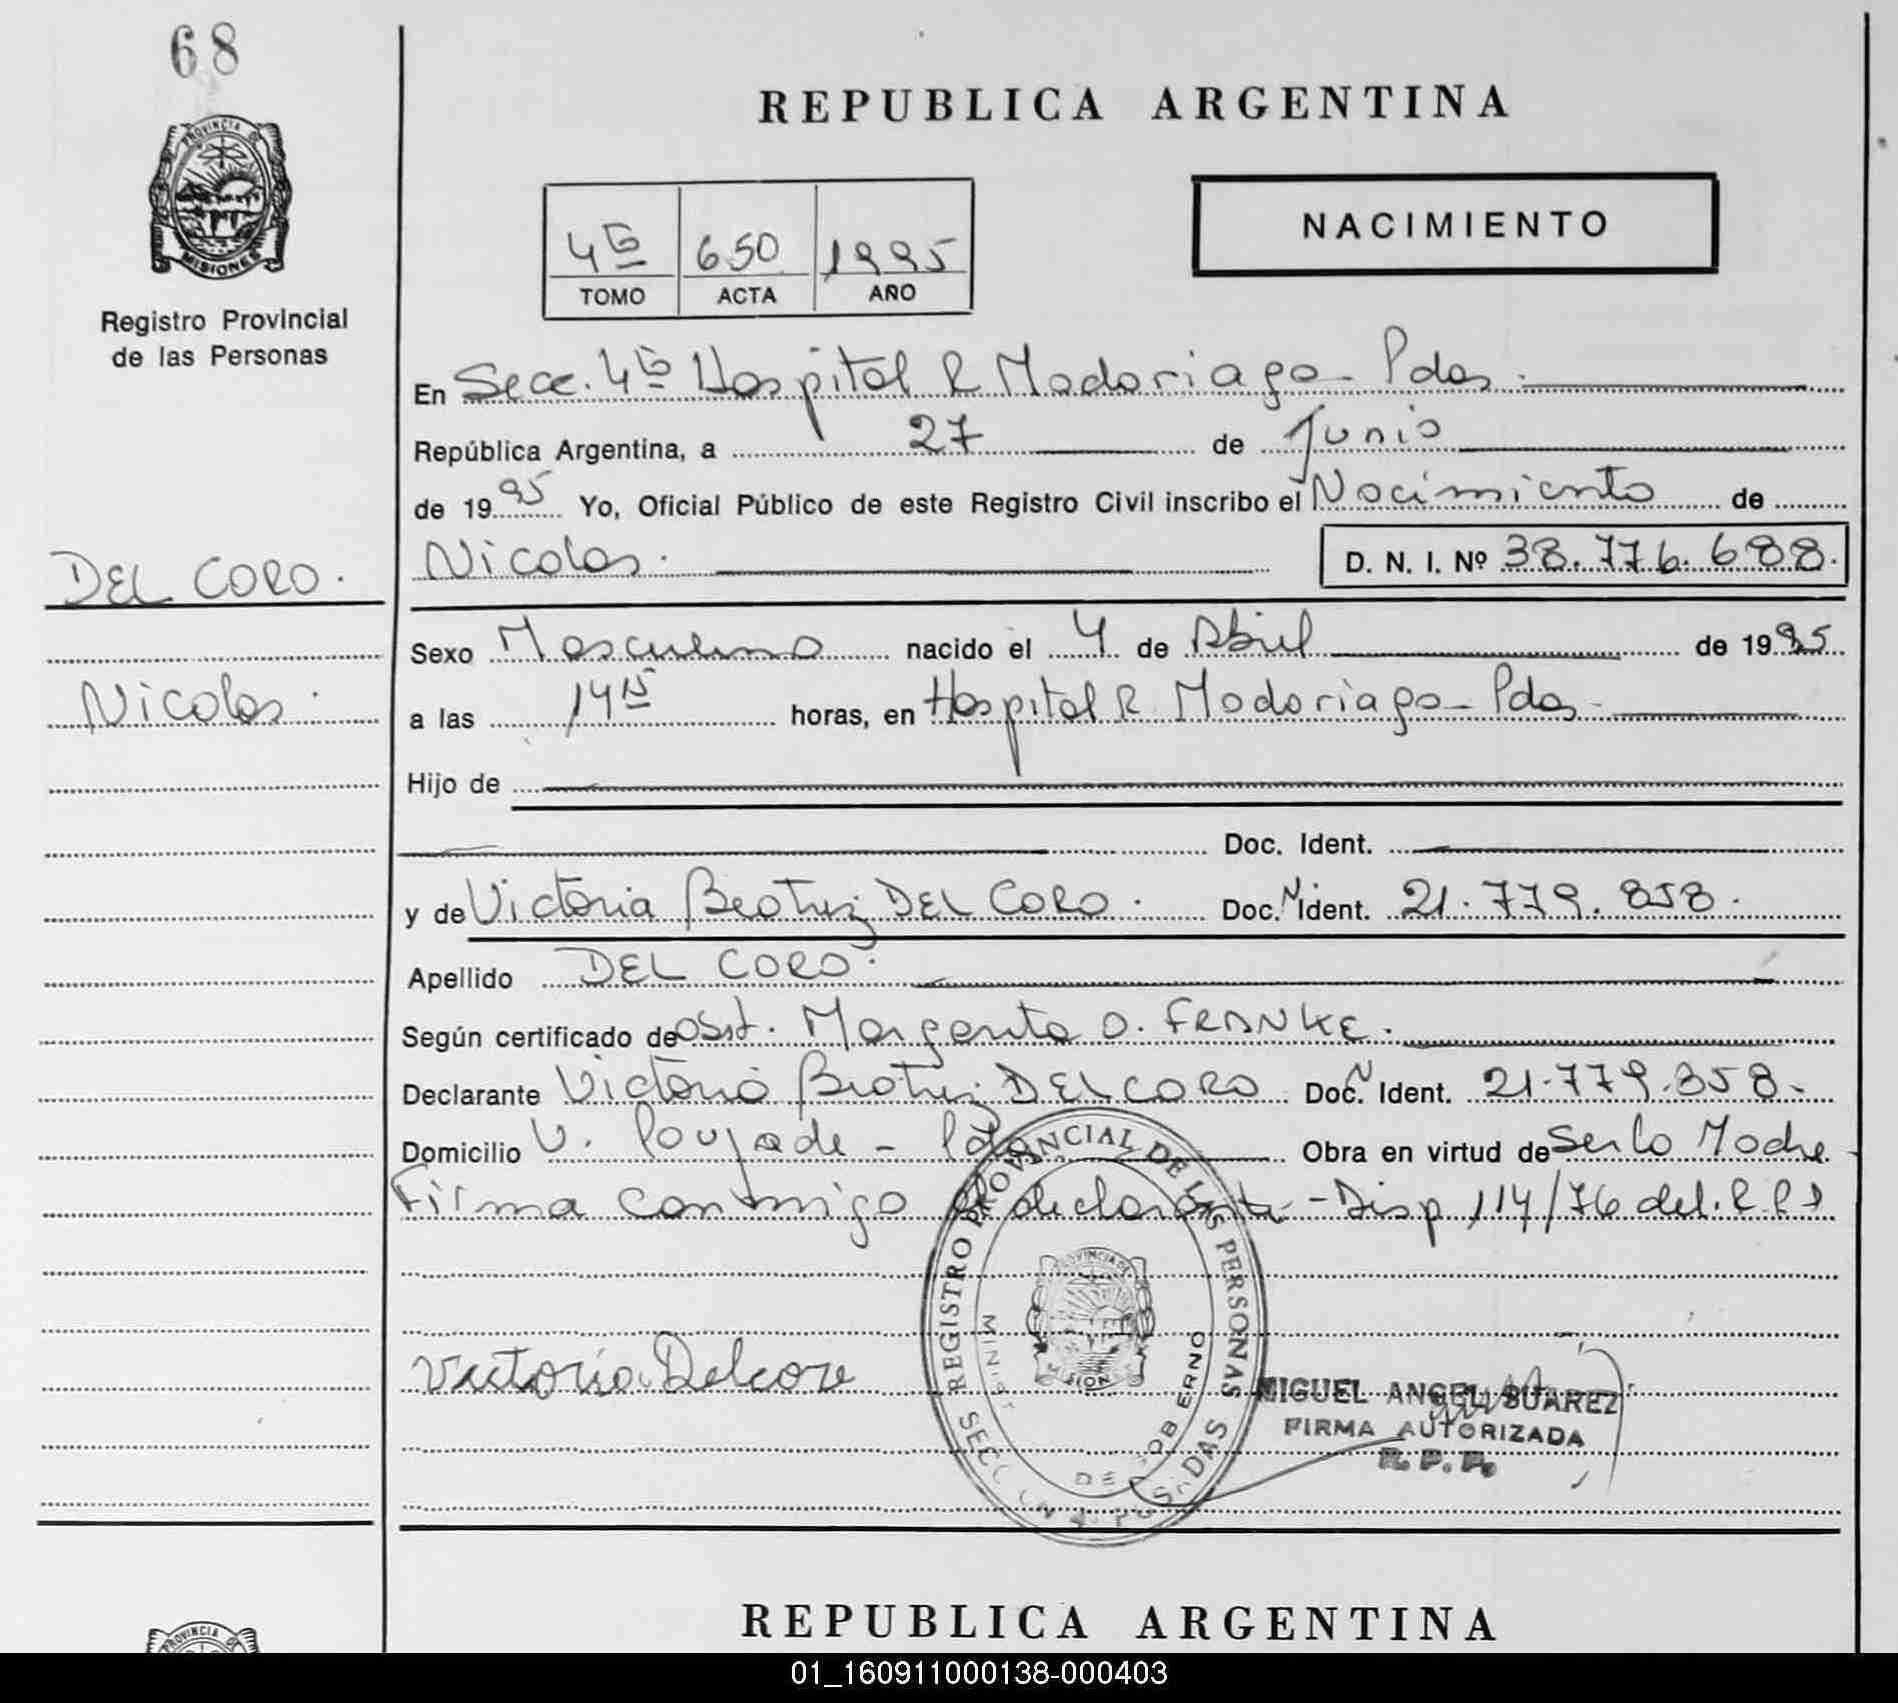 68
PROVINCIA DE
MISIONES
Registro Provincial
de las Personas
REPUBLICA ARGENTINA
4to 650 1995
TOMO ACTA AÑO
NACIMIENTO
En Secc. 4ta Hospital R Madariaga - Pdas.
República Argentina, a 27 de Junio
de 1995 Yo, Oficial Público de este Registro Civil inscribo el Nacimiento de
DEL CORO.
Nicolas.
Nicolas. D. N. I. Nº 38.776.688.
Sexo Masculino nacido el 4 de Abril de 1995
a las 14 15 horas, en Hospital R. Madariaga - Pdas -
Hijo de
Doc. Ident.
y de Victoria Beatriz DEL CORO. Doc. N Ident. 21.779.858.
Apellido DEL CORO.
Según certificado de Obst. Margarita O. FRANKE.
Declarante Victoria Beatriz DEL CORO Doc. N Ident. 21.779.858.
Domicilio V. Poujade - Pdas Obra en virtud de Ser la Madre
Firma conmigo el declarante - Disp 114/76 del. R.P.P
Victoria Delcore
REGISTRO PROVINCIAL DE LAS PERSONAS
DE GOBIERNO
MIGUEL ANGEL SUAREZ
FIRMA AUTORIZADA
R. P. P.
REPUBLICA ARGENTINA
PROVINCIA DE
01_160911000138-000403